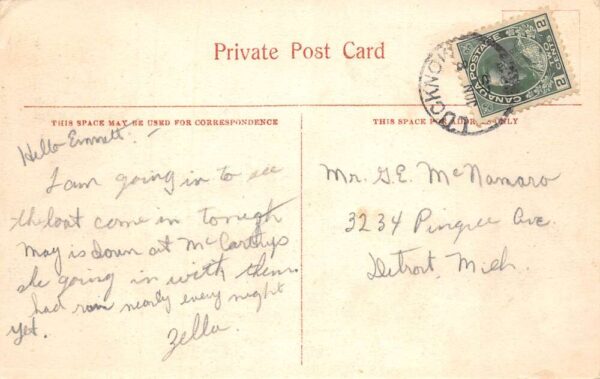 Private Post Card
THIS SPACE MAY BE USED FOR CORRESPONDENCE
THIS SPACE FOR ADDRESS ONLY
CANADA POSTAGE
2 CENTS 2
LUCKNOW
JUN
Hello Emmett. -
I am going in to see
the boat come in tonigh
May is down at McCarthys
she going in with them.
had rain nearly every night
yet.
Zella.
Mr. G.E. McNamara
3234 Pingree Ave.
Detroit, Mich.